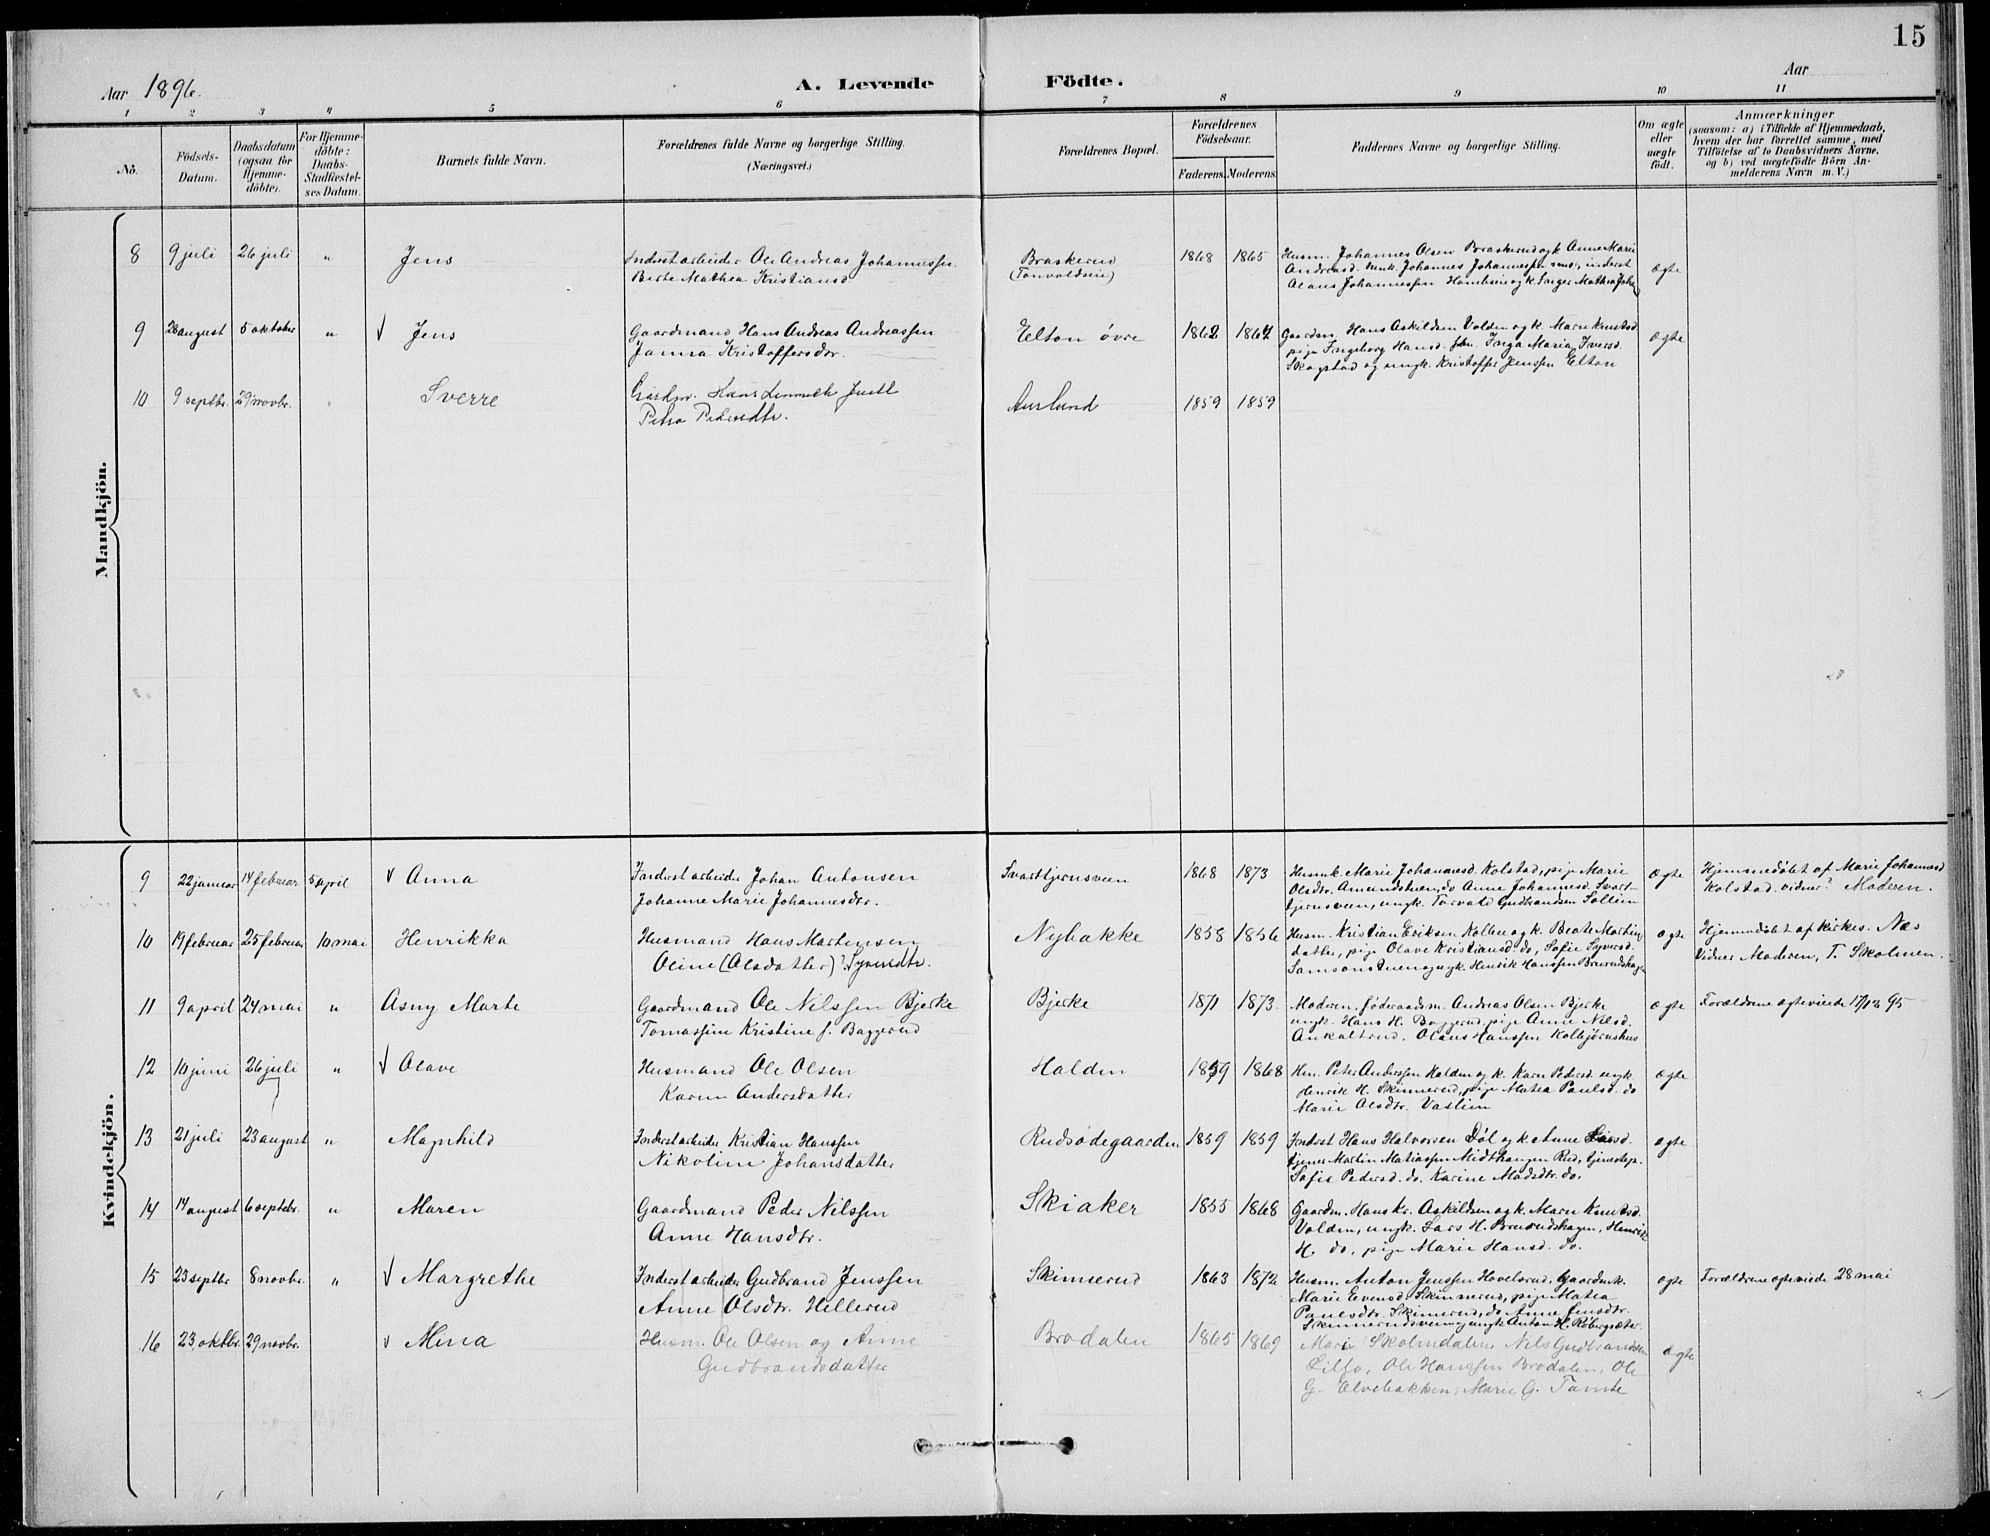 15
Aar 1896.
A. Levende Födte.
Aar
1 2 3 4 5 6 7 8 9 10 11
No.
Födsels-Datum.
Daabsdatum (ogsaa for Hjemme-döbte).
For Hjemme-döbte: Daabs-Stadfæstel-ses Datum.
Barnets fulde Navn.
Forældrenes fulde Navne og borgerlige Stilling. (Næringsvei.)
Forældrenes Bopæl.
Forældrenes Födselsaar.
Faderens. Moderens.
Faddernes Navne og borgerlige Stilling.
Om ægte eller uægte födt.
Anmærkninger
(saasom: a) i Tilfælde af Hjemmedaab,
hvem der har forrettet samme, med
Tilföielse af to Daabsvidners Navne,
og b) ved uægtefödte Börn An-
melderens Navn m. V.)
Mandkjön.
8 9 juli 26 juli " Jens
Inderstarbeider Ole Andreas Johannessen
Berte Mathea Kristiansd
Braskerud
(Tonvoldseie)
1868 1865
Husm. Johannes Olsen Braskerud og k. Anne Marie
Andreasd. Johannes Johannessen inderst
Olaus Johannessen og k. Inger Mathea
ægte
9 28 august 5 oktober " Jens
Gaardmand Hans Andreas Andreassen
Janna Kristoffersdtr.
Elton övre
1862 1867
Gaardm. Hans Askildsen Volden og k. Marie Knutsd.
pige Ingeborg Hansd. Inga Maria Iversd.
Skogstad og ungk. Kristoffer Jenssen Elton
ægte
10 9 septbr. 29 novbr. Sverre
Gardm. Hans Juell
Petra Pedersdtr.
Aurlund
1859 1859
Kvindekjön.
9 22 januar 14 februar 5 april Anna
Inderstarbeider Johan Antonsen
Johanne Marie Johannesdtr.
Svarttjernsveen
1868 1873
Husmk. Marie Johannesd. Kolstad, pige Marie
Olsdtr. Amundstuen, do Anne Johannesd. Svart-
tjernsveen, ungk. Torvald Gudbrandsen Sollien
ægte
Hjemmedøbt af Marie Johannesd
Kolstad. vidner? Moderen.
10 19 februar 25 februar 10 mai Henrikka
Husmand Hans Martinsen
Oline (Olsdatter)? Syversdtr.
Nybakke
1858 1856
Husm. Kristian Eriksen Kolben og k. Beate Martins
datter, pige Olave Kristiansd. do, Sofie Syversd.
Samsonstuen og ungk. Henrik Hanssen Bruerudshagen
ægte
Hjemmedøbt af Kirkes. Næs
Vidner Moderen, T. Skolmen.
11 9 april 24 mai " Asny Marte
Gaardmand Ole Nilssen Bjerke
Tomassine Kristine f. Baggerud
Bjerke
1871 1873
Moderen, føderaadsm. Andreas Olsen Bjerke
ungk. Hans H. Baggerud, pige Anne Nilsd.
Ankaltrud. Olaus Hanssen Kolbjørnshus
ægte
Forældrene ægteviede 17/12 95
12 10 juni 26 juli " Olave
Husmand Ole Olsen
Karen Andersdatter
Halden
1859 1868
Hm. Peter Anderssen Halden og k. Karen Pedersd. ungk.
Henrik H. Skinnerud, pige Matea Paulsd. do
Marie Olsdtr. Vaslien
ægte
13 21 juli 23 august " Magnhild
Inderstarbeider Kristian Hanssen
Nikoline Johansdatter
Rudsødegaarden
1859 1859
Inderst Hans Halvorsen Døl og k. Anne Larsd.
tjener Martin Matiassen Midthaugen Rud, tjenestep.
Sofie Pedersd. do. Karine Madsdtr. do.
ægte
14 14 august 6 septbr. " Maren
Gaardmand Peder Nilssen
Anne Hansdtr.
Skiaker
1855 1868
Gaardm. Hans Kr. Askildsen og k. Maren Knutsd.
Volden, ungk. Lars H. Bruerudshagen, Henrik
H. do, pige Marie Hansd. do.
ægte
15 23 septbr 8 novbr. " Margrethe
Inderstarbeider Gudbrand Jenssen
Anne Olsdtr. Hillerud
Skinnerud
1863 1872
Husm. Anton Jenssen Hovelsrud, Gaardmk.
Marie Evensd. Skinnerud, pige Matea
Paulsdtr. Skinnerud, do Anne Jensdtr.
Skinnerudsveen og ungk Anton H. Røbergsæter
ægte
Forældrene ægteviede 28 mai
16 23 oktbr. 29 novbr. Mina
Husm. Ole Olsen og Anne
Gudbrandsdatter
Brodalen
1865 1869
Marie Skolmdalen Nils Gudbrandsen
Lillo, Ole Hanssen Brodalen, Ole
G. Elvebakken, Marie G. Tomte
ægte